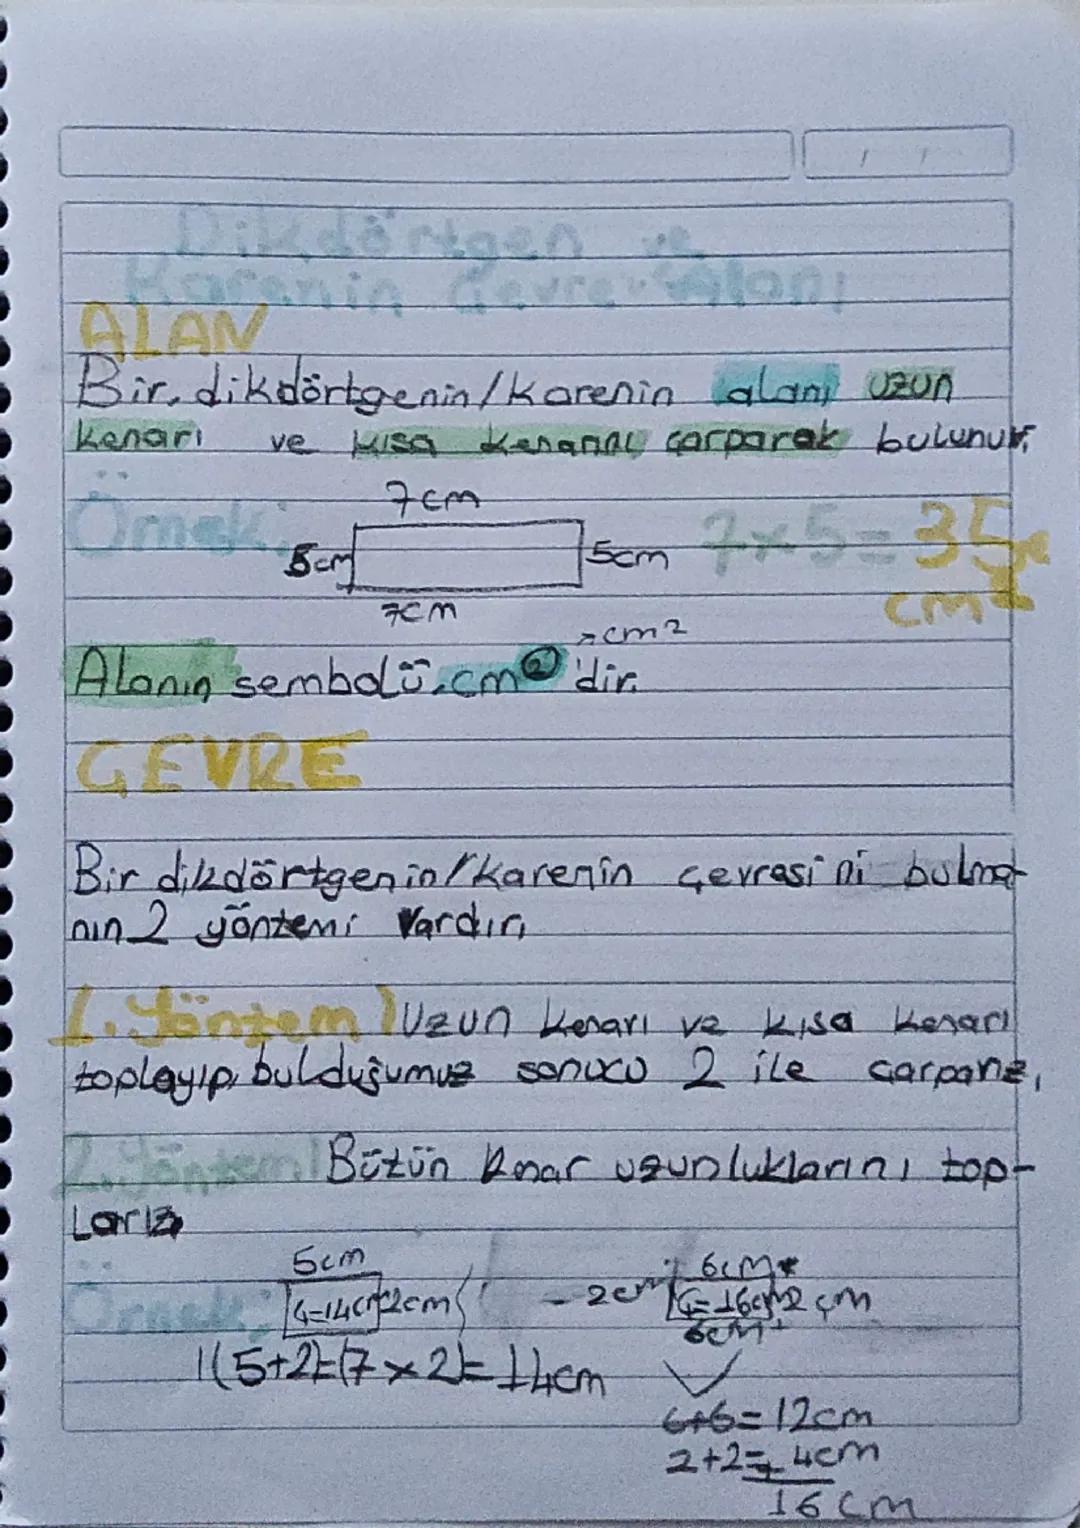 Dikdörtgen ve
Karenin Çevre Alanı
ALAN
Bir dikdörtgenin/karenin alanı uzun
kenarı ve kısa kenarını çarparak bulunur.
Örnek;
7cm
5cm
5cm
7×5=35
cm²
7cm
→cm2
Alanın sembolü cm② 'dir.
ÇEVRE
Bir dikdörtgenin/karenin çevresini bulma-
nın 2 yöntemi vardır.
1. Yöntem) Uzun kenarı ve kısa kenarı
toplayıp, bulduğumuz sonucu 2 ile çarparız.
2. Yöntem) Bütün kenar uzunluklarını top-
larız
Örnek;
5cm
Ç=14cm 2cm
6cm
2cm Ç=16cm 2cm
6cm
(5+2)=(7×2)=14cm
6+6=12cm
2+2=4cm
16cm